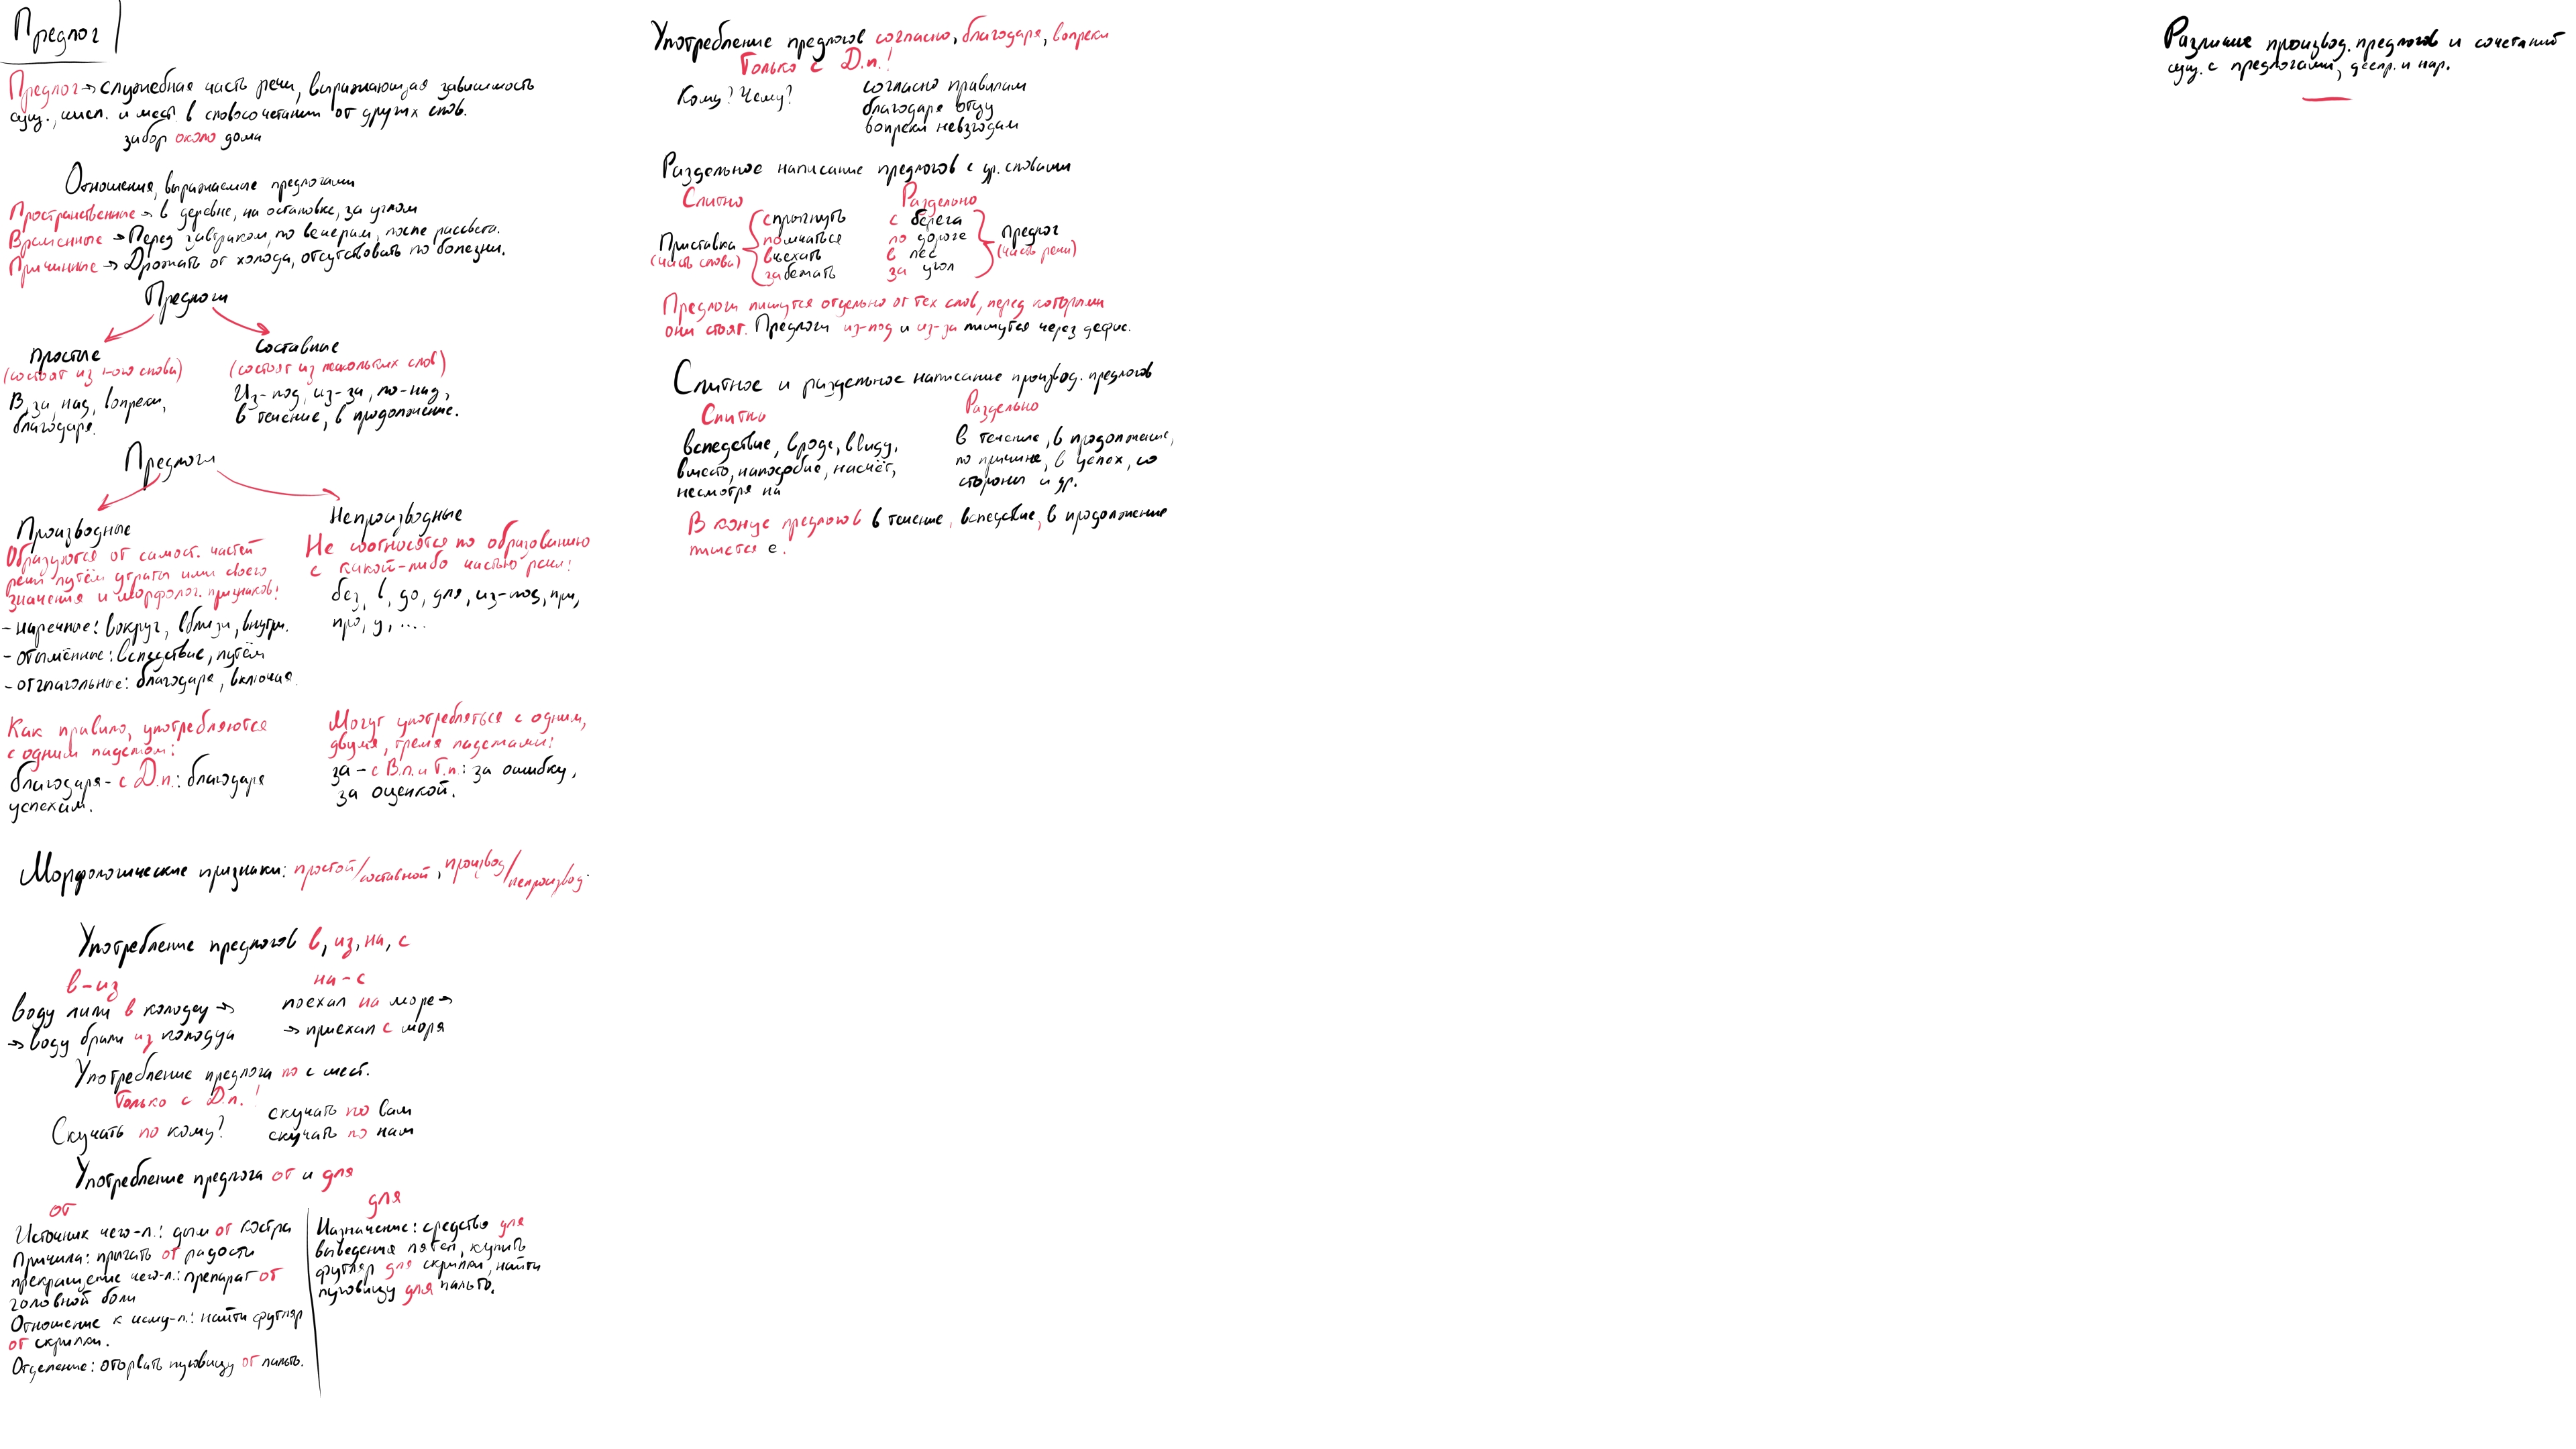 Предлог
Предлог → служебная часть речи, выражающая зависимость
сущ., числ. и мест. в словосочетании от других слов.
забор около дома
Отношения, выражаемые предлогами
Пространственные → в деревне, на остановке, за углом
Временные → Перед завтраком, по вечерам, после рассвета.
Причинные → Дрожать от холода, отсутствовать по болезни.
Предлоги
простые
(состоят из 1-ого слова)
В, за, над, вопреки,
благодаря.
составные
(состоят из нескольких слов)
Из-под, из-за, по-над,
в течение, в продолжение.
Предлоги
Производные
Образуются от самост. частей
речи путём утраты ими своего
значения и морфолог. признаков:
- наречные: вокруг, вблизи, внутри.
- отымённые: вследствие, путём
- отглагольные: благодаря, включая.
Непроизводные
Не соотносятся по образованию
с какой-либо частью речи:
без, в, до, для, из-под, при,
про, у, ....
Как правило, употребляются
с одним падежом:
благодаря - с Д.п.: благодаря
успехам.
Могут употребляться с одним,
двумя, тремя падежами:
за - с В.п. и Т.п.: за ошибку,
за оценкой.
Морфологические признаки: простой/составной, производ/непроизвод.
Употребление предлогов в, из, на, с
в-из
воду лили в колодец →
→ воду брали из колодца
на-с
поехал на море →
→ приехал с моря
Употребление предлога по с мест.
Только с Д.п.!
Скучать по кому?
скучать по вам
скучать по нам
Употребление предлога от и для
от
Источник чего-л.: дым от костра
Причина: прыгать от радости
прекращение чего-л.: препарат от
головной боли
Отношение к чему-л.: найти футляр
от скрипки.
Отделение: оторвать пуговицу от пальто.
для
Назначение: средство для
выведения пятен, купить
футляр для скрипки, найти
пуговицу для пальто.
Употребление предлогов согласно, благодаря, вопреки
Только с Д.п.!
Кому? Чему?
согласно правилам
благодаря отцу
вопреки невзгодам
Раздельное написание предлогов с др. словами
Слитно
Приставка
(часть слова)
спрыгнуть
помчаться
въехать
забежать
Раздельно
с берега
по дороге
в лес
за угол
Предлог
(часть речи)
Предлоги пишутся отдельно от тех слов, перед которыми
они стоят. Предлоги из-под и из-за пишутся через дефис.
Слитное и раздельное написание производ. предлогов
Слитно
вследствие, вроде, ввиду,
вместо, наподобие, насчёт,
несмотря на
Раздельно
в течение, в продолжение,
по причине, в целях, со
стороны и др.
В конце предлогов в течение, вследствие, в продолжение
пишется е.
Различие производ. предлогов и сочетаний
сущ. с предлогами, деепр. и нар.